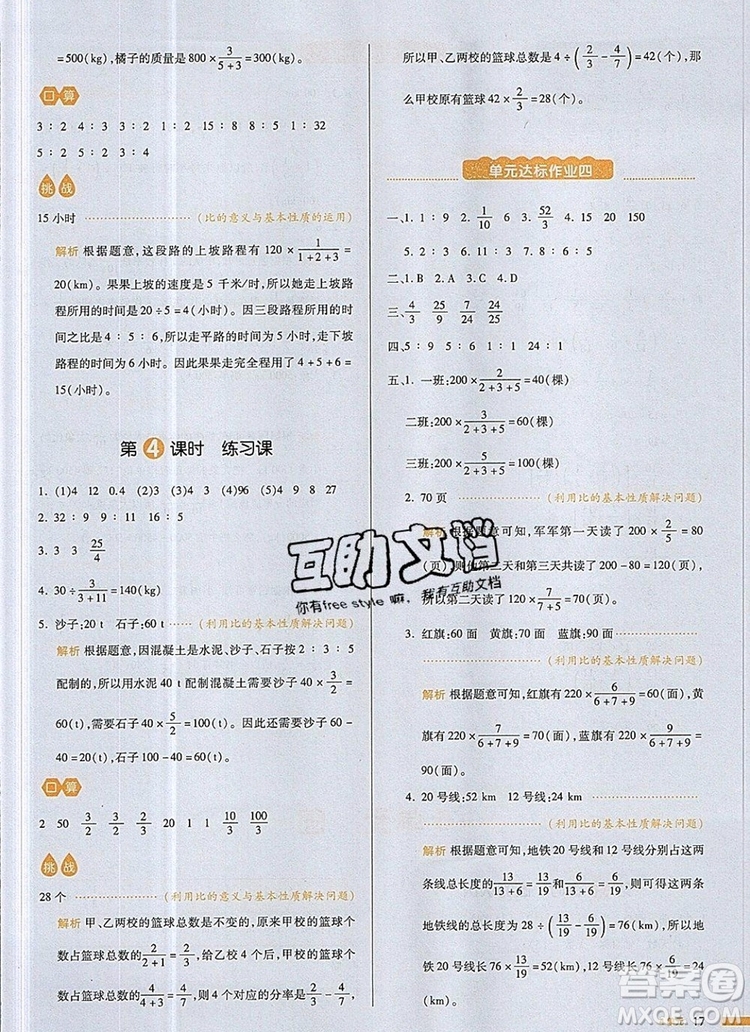 =500(kg),橘子的质量是 800×3/(5+3)=300(kg)。
口算
3∶2 4∶3 2∶1 15∶8 5∶1 1∶32
5∶2 5∶2 3∶4
挑战
15 小时 (比的意义与基本性质的运用)
解析 根据题意,这段路的上坡路程有 120×1/(1+2+3)=
20(km)。果果上坡的速度是 5 千米/时,所以她走上坡路
程所用的时间是 20÷5=4(小时)。因三段路程所用时
间之比是 4∶5∶6,所以走平路的时间是 5 小时,走下坡
路程的时间为 6 小时。因此果果走完全程用了 4+5+6=
15(小时)。
第4课时 练习课
1. (1)4 12 0.4 (2)3 (3)2 (4)96 (5)4 9 8 27
2. 32∶9 9∶11 16∶5
3. 3 3 25/4
4. 30÷3/(3+11)=140(kg)
5. 沙子:20 t 石子:60 t (利用比的基本性质解决问题)
解析 根据题意,因混凝土是水泥、沙子、石子按 2∶3∶5
配制的,所以用水泥 40 t 配制混凝土,需要沙子 40×3/2=
60(t),需要石子 40×5/2=100(t)。因此还需要沙子 60-
40=20(t),石子 100-40=60(t)。
口算
2 50 3/2 3/2 3/2 20 1 1 100/3 100/3
挑战
28 个 (利用比的意义与基本性质解决问题)
解析 甲、乙两校的篮球总数是不变的,原来甲校的篮球个
数占篮球总数的 2/(2+1)=2/3,给乙校 4 个后,甲校的篮球个
数占篮球总数的 4/(4+3)=4/7,所以 4 个对应的分率是 2/3-4/7,
所以甲、乙两校的篮球总数是 4÷(2/3-4/7)=42(个),那
么甲校原有篮球 42×2/3=28(个)。
单元达标作业四
一、1. 1∶9 2. 1/10 6 3. 52/3 4. 15 20 150
5. 2∶3 6. 11∶8 7. 8∶5∶11
二、1. B 2. A 3. C 4. D
三、4/3 25/9 7/24 25/24
四、5∶9 5∶6 1∶1 24∶1
五、1. 一班:200×2/(2+3+5)=40(棵)
二班:200×3/(2+3+5)=60(棵)
三班:200×5/(2+3+5)=100(棵)
2. 70 页 (利用比的基本性质解决问题)
解析 根据题意可知,军军第一天读了 200×2/5=80
(页),则他第二天和第三天共读了 200-80=120(页),
所以第二天读了 120×7/(7+5)=70(页)。
3. 红旗:60 面 黄旗:70 面 蓝旗:90 面
(利用比的基本性质解决问题)
解析 根据题意可知,红旗有 220×6/(6+7+9)=60(面),黄
旗有 220×7/(6+7+9)=70(面),蓝旗有 220×9/(6+7+9)=
90(面)。
4. 20 号线:52 km 12 号线:24 km
(利用比的基本性质解决问题)
解析 根据题意可知,地铁 20 号线和 12 号线分别占这两
条线总长度的 13/(13+6)=13/19 和 6/(13+6)=6/19,所以这两条
地铁线的总长度为 28÷(13/19-6/19)=76(km),所以
地铁 20 号线长 76×13/19=52(km),12 号线长 76×6/19=24
(km)。
互助文档
你有free style 嘛,我有互助文档
答案圈
MXQE.COM
17